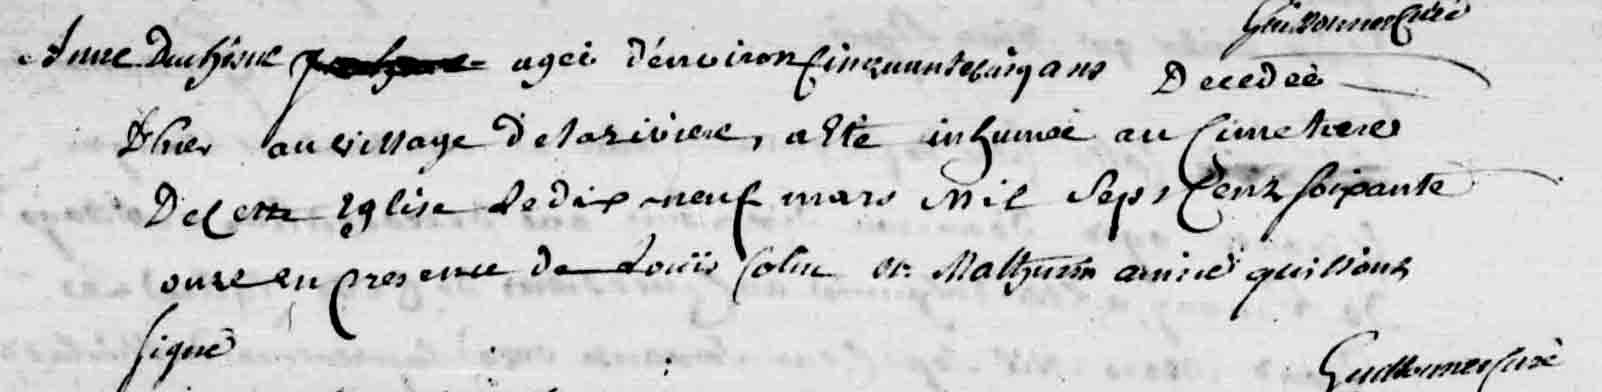 Guillonnet Curé
Anne Duchêne agee d'environ Cinquante cinq ans Decedeé
D'hier au village de la riviere, a Eté inhumée au Cimetiere
De cette Eglise Le dix neuf mars Mil Sept Cent soixante
onze en presence de Louis Colin et Mathurin qui n'ont
signé
Guillonnet Curé